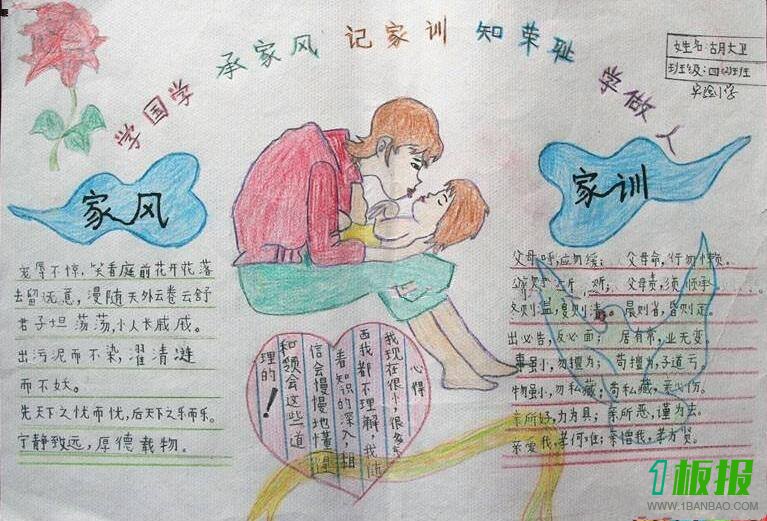 学国学 承家风 记家训 知荣耻 学做人
姓名:胡大卫
班级:四(4)班
实验小学
家风
宠辱不惊,笑看庭前花开花落
去留无意,漫随天外云卷云舒
君子坦荡荡,小人长戚戚。
出污泥而不染,濯清涟
而不妖。
先天下之忧而忧,后天下之乐而乐。
宁静致远,厚德载物。
心得
我现在很小,很多东
西我都不理解,我
着知识的深入,相
信会慢慢地懂得
和领会这些道
理的!
家训
父母呼,应勿缓; 父母命,行勿懒。
父母责,须顺承
冬则温,夏则凊。晨则省,昏则定。
出必告,反必面; 居有常,业无变
事虽小,勿擅为; 苟擅为,子道亏
物虽小,勿私藏;苟私藏,亲心伤。
亲所好,力为具; 亲所恶,谨为去。
亲爱我,孝何难;亲憎我,孝方贤。
1板报
WWW.1BANBAO.COM